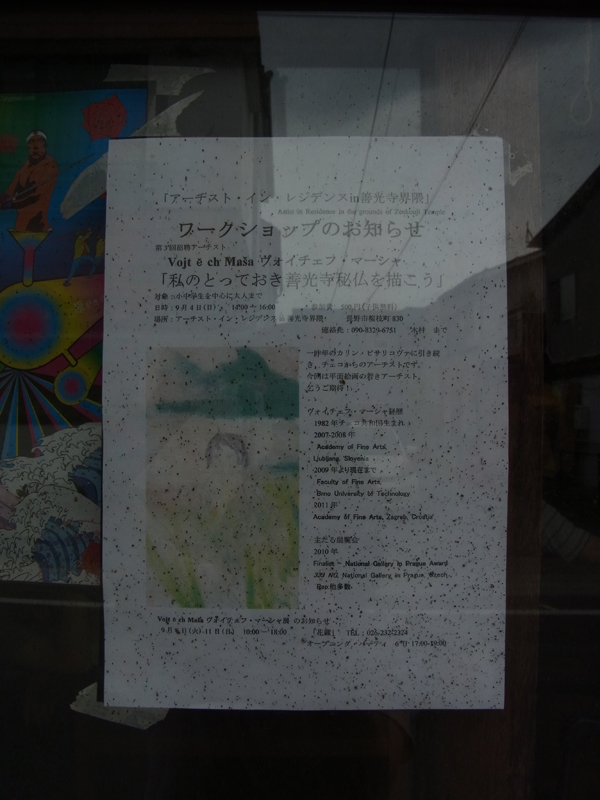 「アーチスト・イン・レジデンスin善光寺界隈」
Artist in Residence in the grounds of Zenkouji Temple
ワークショップのお知らせ
第7回招聘アーチスト
Vojt ě ch Maša ヴォイチェフ・マーシャ
「私のとっておき善光寺秘仏を描こう」
対象:小中学生を中心に大人まで
日時:9月4日(日) 14:00〜16:00 参加費 500円
場所:アーチスト・イン・レジデンスin善光寺界隈 長野市桜枝町830
連絡先:090-8329-6751 木村 まで
一昨年のカリン・ピサリコヴァに引き続
き、チェコからのアーチストです。
今回は平面絵画の若きアーチスト。
乞うご期待!
ヴォイチェフ・マーシャ経歴
1982年チェコ共和国生まれ
2007-2008年
Academy of Fine Arts,
Ljubljana, Slovenia
2009年より現在まで
Faculty of Fine Arts,
Brno University of Technology
2011年
Academy of Fine Arts, Zagreb, Croatia
主たる展覧会
2010年
Finalist - National Gallery in Prague Award
333 NG, National Gallery in Prague, Czech
Rep.他多数
Vojt ě ch Maša ヴォイチェフ・マーシャ展 のお知らせ
9月6日(火)-11日(日) 10:00〜18:00 「花蔵」 TEL:026-232-2324
オープニング・パーティ 6日17:00-19:00